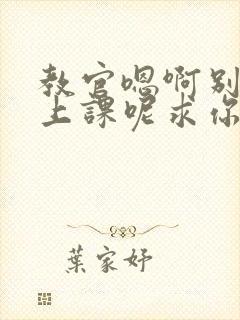 教官嗯啊别
上課呢求你
葉家妤